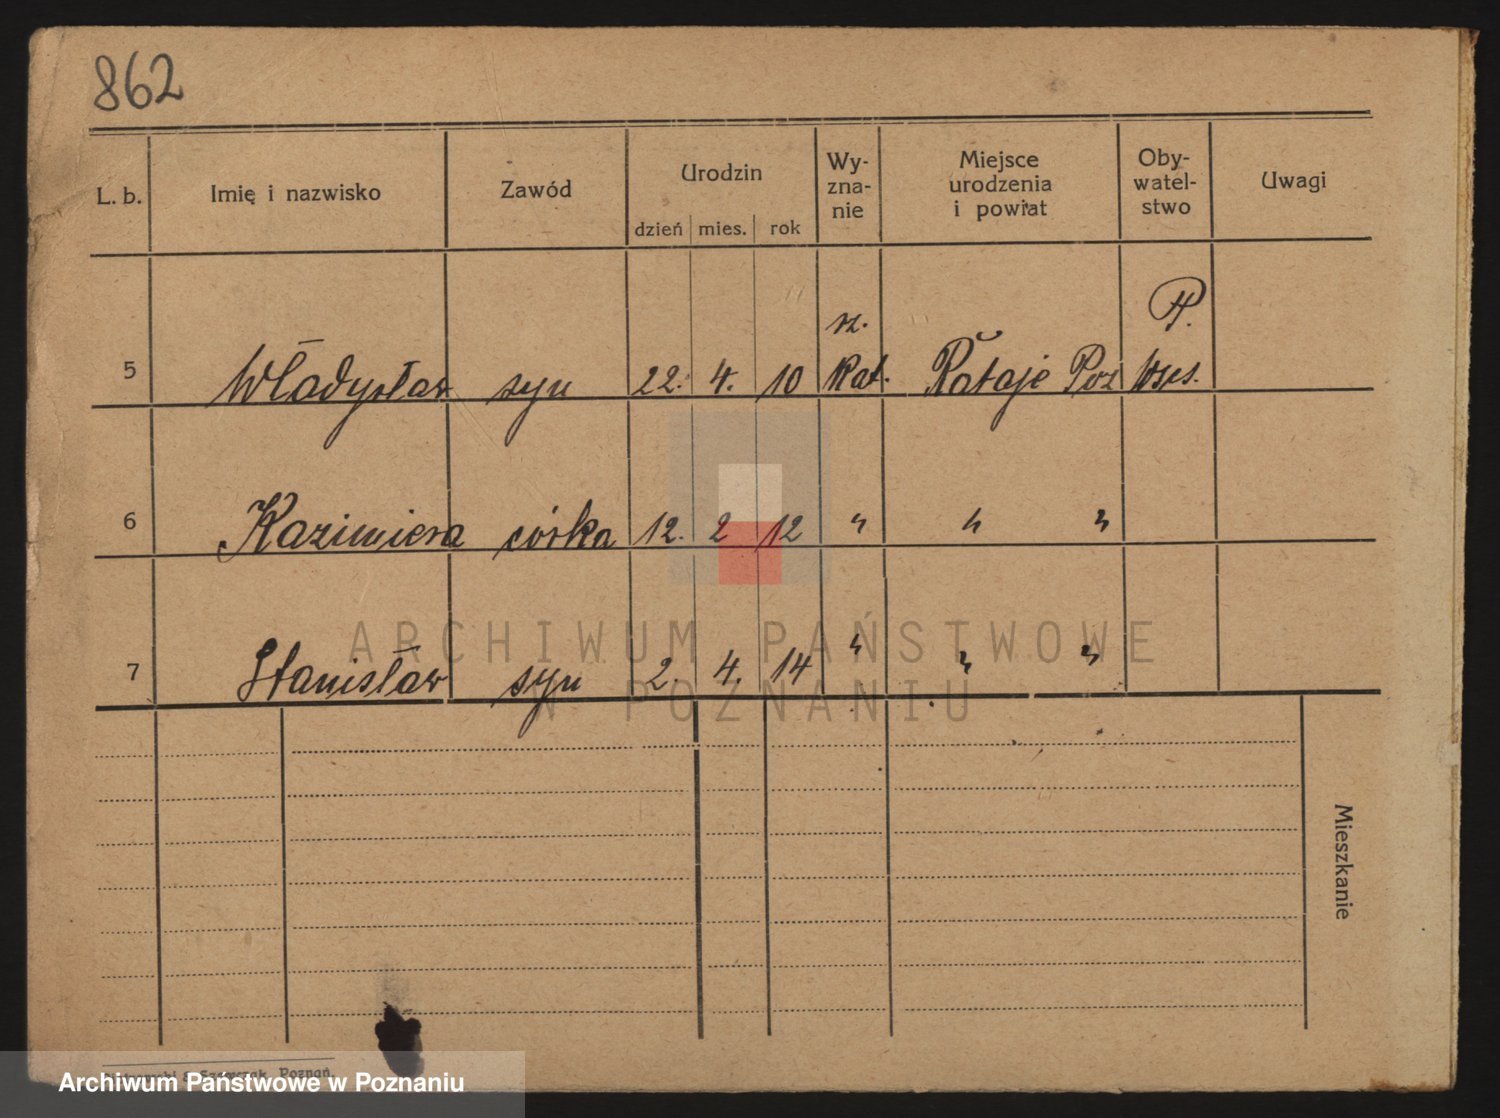 862
L. b. Imię i nazwisko Zawód Urodzin Wy-zna-nie Miejsce urodzenia i powiat Oby-watel-stwo Uwagi
dzień mies. rok
rz. P.
5 Władysław syn 22. 4. 10 Kat. Rataje Poz
6 Kazimiera córka 12. 2 12 " " "
7 Stanisław syn 2. 4. 14 " " "
ARCHIWUM PAŃSTWOWE
W POZNANIU
Mieszkanie
Szewczak, Poznań.
Archiwum Państwowe w Poznaniu